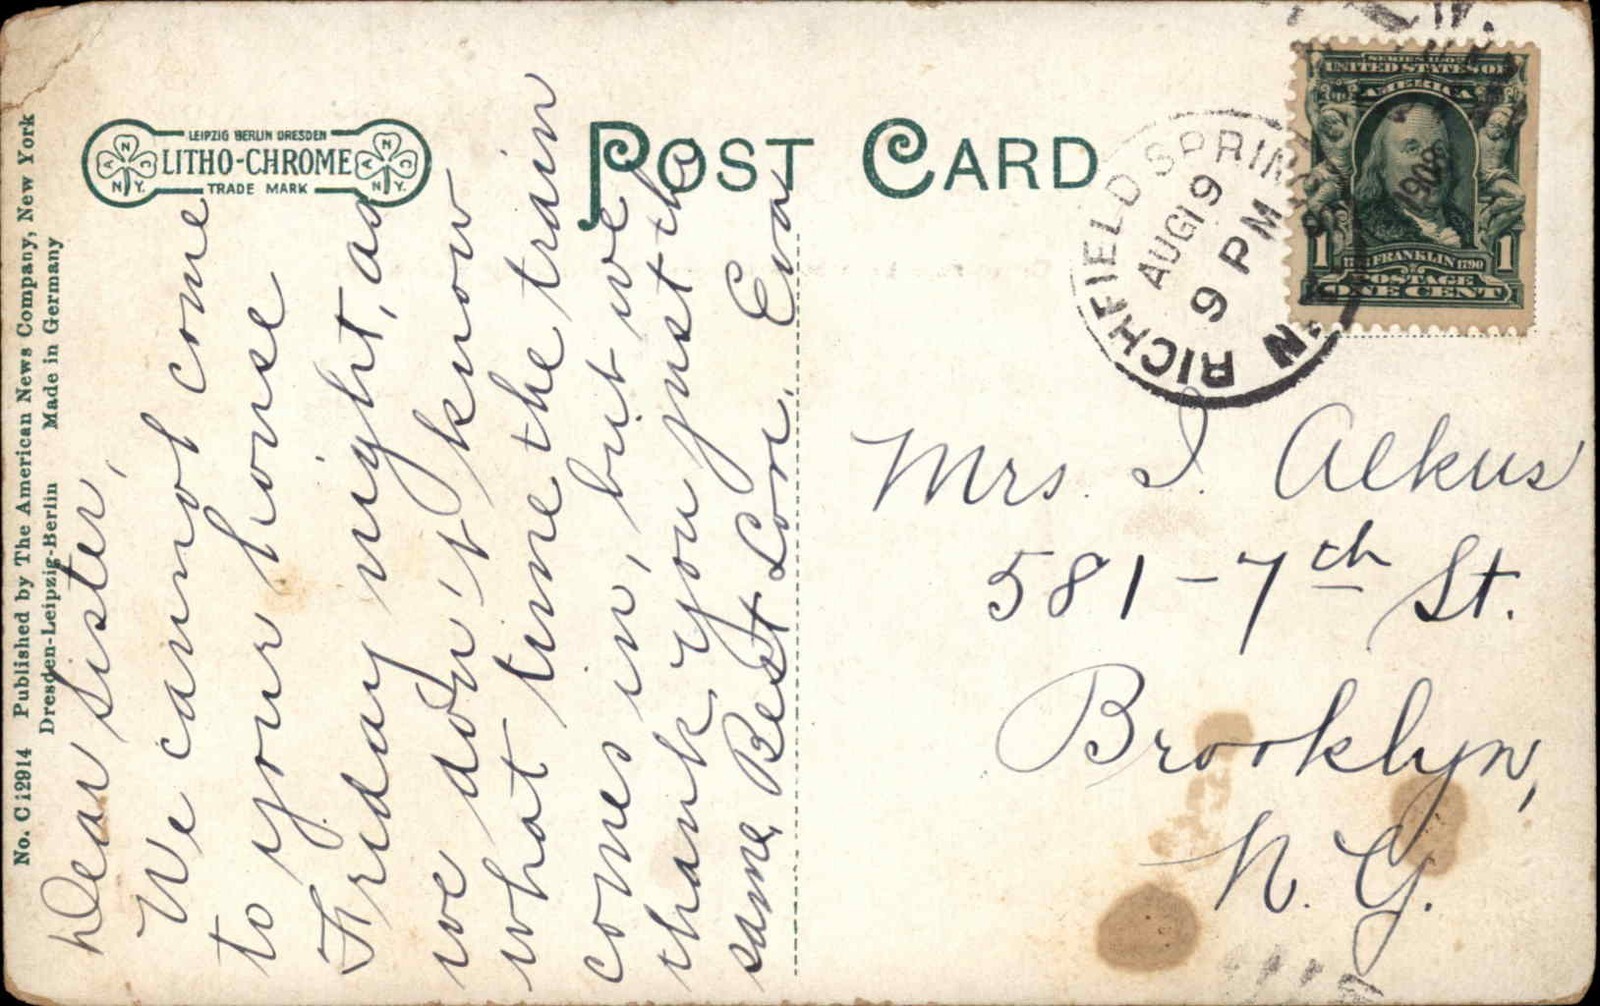 No. C 12914 Published by The American News Company, New York
Dresden-Leipzig-Berlin Made in Germany
LEIPZIG BERLIN DRESDEN
LITHO-CHROME
TRADE MARK
A N C
N. Y.
A N C
N. Y.
POST CARD
Dear Sister,
We cannot come
to your house
Friday night, as
we don't know
what time the train
comes in, but we
thank you just the
same. Best Love. Eva
RICHFIELD SPRINGS
AUG 19
9 PM
1908
N.
SERIES 1902
UNITED STATES OF
AMERICA
1 FRANKLIN 1790 1
POSTAGE
ONE CENT
Mrs. I. Alkus
581-7th St.
Brooklyn,
N. Y.